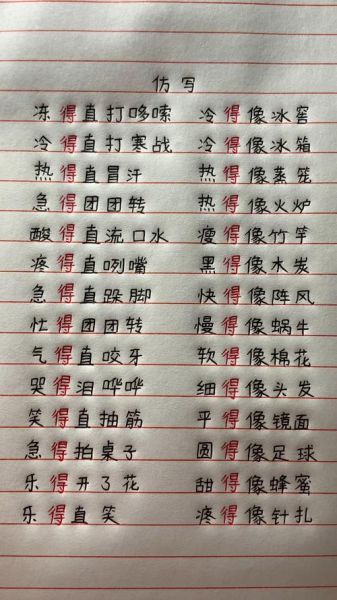 仿写
冻得直打哆嗦 冷得像冰窖
冷得直打寒战 冷得像冰箱
热得直冒汗 热得像蒸笼
急得团团转 热得像火炉
酸得直流口水 瘦得像竹竿
疼得直咧嘴 黑得像木炭
急得直跺脚 快得像阵风
忙得团团转 慢得像蜗牛
气得直咬牙 软得像棉花
哭得泪哗哗 细得像头发
笑得直抽筋 平得像镜面
急得拍桌子 圆得像足球
乐得开了花 甜得像蜂蜜
乐得直笑 疼得像针扎